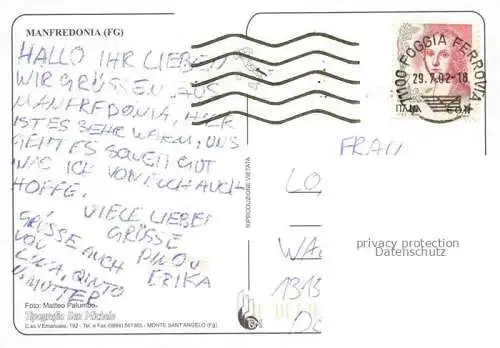 MANFREDONIA (FG)
HALLO IHR LIEBEN
WIR GRÜSSEN AUS
MANFREDONIA, HIER
IST ES SEHR WARM, UNS
GEHT ES SOWEIT GUT
ICH VON EUCH AUCH
HOFFE.
VIELE LIEBE
GRÜSSE
PINO U
ERIKA
GRÜSSE AUCH
VON
LUCA, QINTO
U. MUTTER
Foto: Matteo Palumbo
Tipografia San Michele
C.so V.Emanuele, 192 - Tel. e Fax (0884) 561365 - MONTE SANT'ANGELO (Fg)
RIPRODUZIONE VIETATA
FOGGIA FERROVIA
29.7.02-18
ITALIA
FRAU
LO
WA
1313
D
privacy protection
Datenschutz